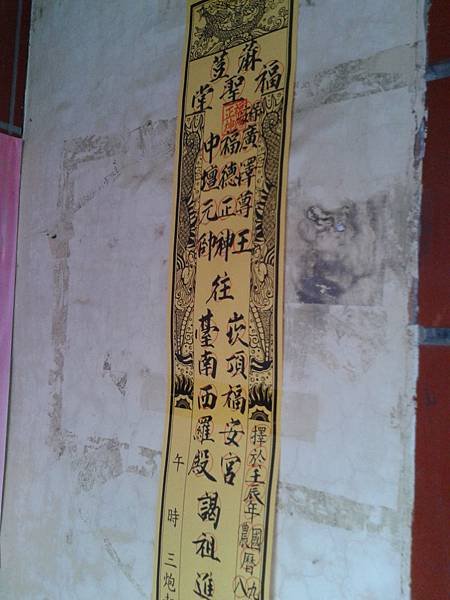 麻荳
福聖堂
廣澤尊王
福德正神
中壇元帥
往
崁頂福安宮
臺南西羅殿
謁祖進
擇於壬辰年
國農曆
九
八
午時三炮